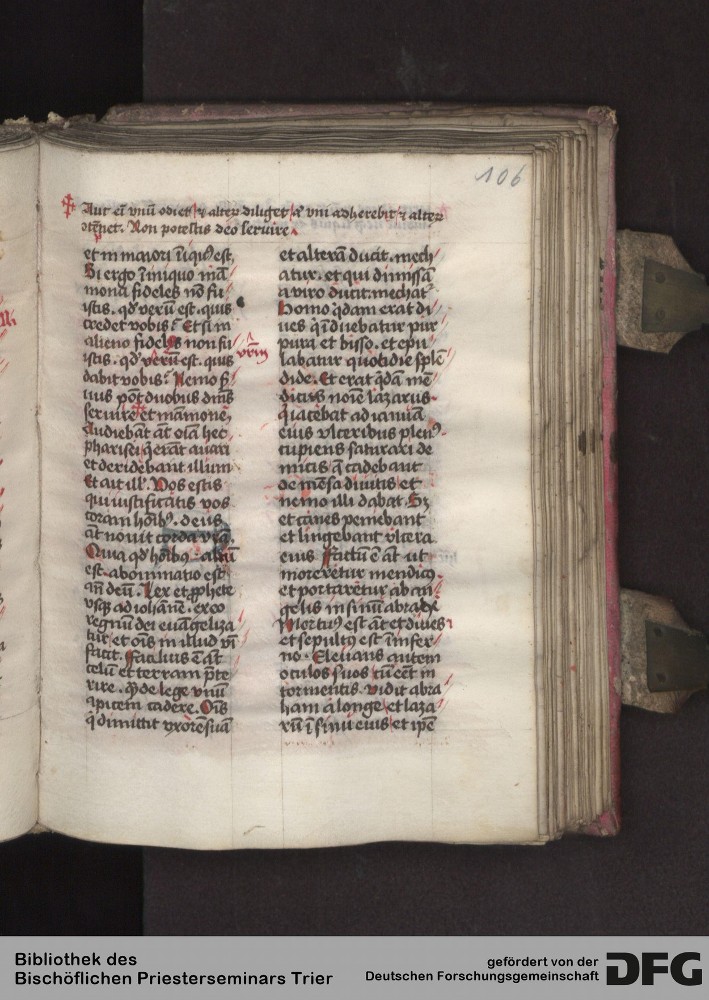 106
Aut eī vnū odiet ⁊ alteꝝ diliget aͭ vni adherebit ⁊ alteꝝ
ɔtēpnet. Non potestis deo seruire
et in maiori īiqͥus est,
Si ergo ī iniquo mā
mona fideles nō fu
istis. qd̕ verū est. quis
credet vobis? Et si in
alieno fideles non fu
istis. qd̕ verū est. quis
vr̄m
dabit vobis? Nemo ẜ
uus pōt duobus dn̄is
seruire et māmone,
Audiebāt āt oīa hec
pharisei qͥ erāt auari
et deridebant illum
Et ait ill̕. Vos estis
qui iustificatis vos
coram hoībꝰ. deus
āt nouit corda vr̄a.
Quia qd̕ hoībꝰ altū
est. abominatio est
an̄ deū. Lex et ꝓphete
vsqꝫ ad iohānē. ex eo
regnū dei euāgeliza
tur et oīs in illud vī
facit. Faciliꝰ ē āt
celū et terram p̄te
rire. qͣꝫ de lege vnū
apicem cadere. Oīs
qͥ dimittit vxorē suā
et alterā ducit. mech
atur. et qui dimissā
a viro ducit. mechat᷑
Homo qͥdam erat di
ues qͥ īduebatur pur
pura et bisso. et epu
labatur quotidie splē
dide. Et erat qͥdā mē
dicus noīe lazarus.
qͥ iacebat ad ianuā
eius vlceribus plenꝰ.
cupiens saturari de
micis q̄ cadebant
de mēsa diuitis et
nemo illi dabat. Sꝫ
et canes veniebant
et lingebant vlcera
eius Factū ē āt ut
moreretur mendicꝰ.
et portaretur ab an
gelis in sinū abrahe
Mortuꝰ est āt et diues
et sepultꝰ est ī infer
no. Eleuans autem
oculos suos cū eēt in
tormentis. vidit abra
ham a longe et laza
rū ī sinu eius et ip̄e
Bibliothek des
Bischöflichen Priesterseminars Trier
gefördert von der
Deutschen Forschungsgemeinschaft
DFG